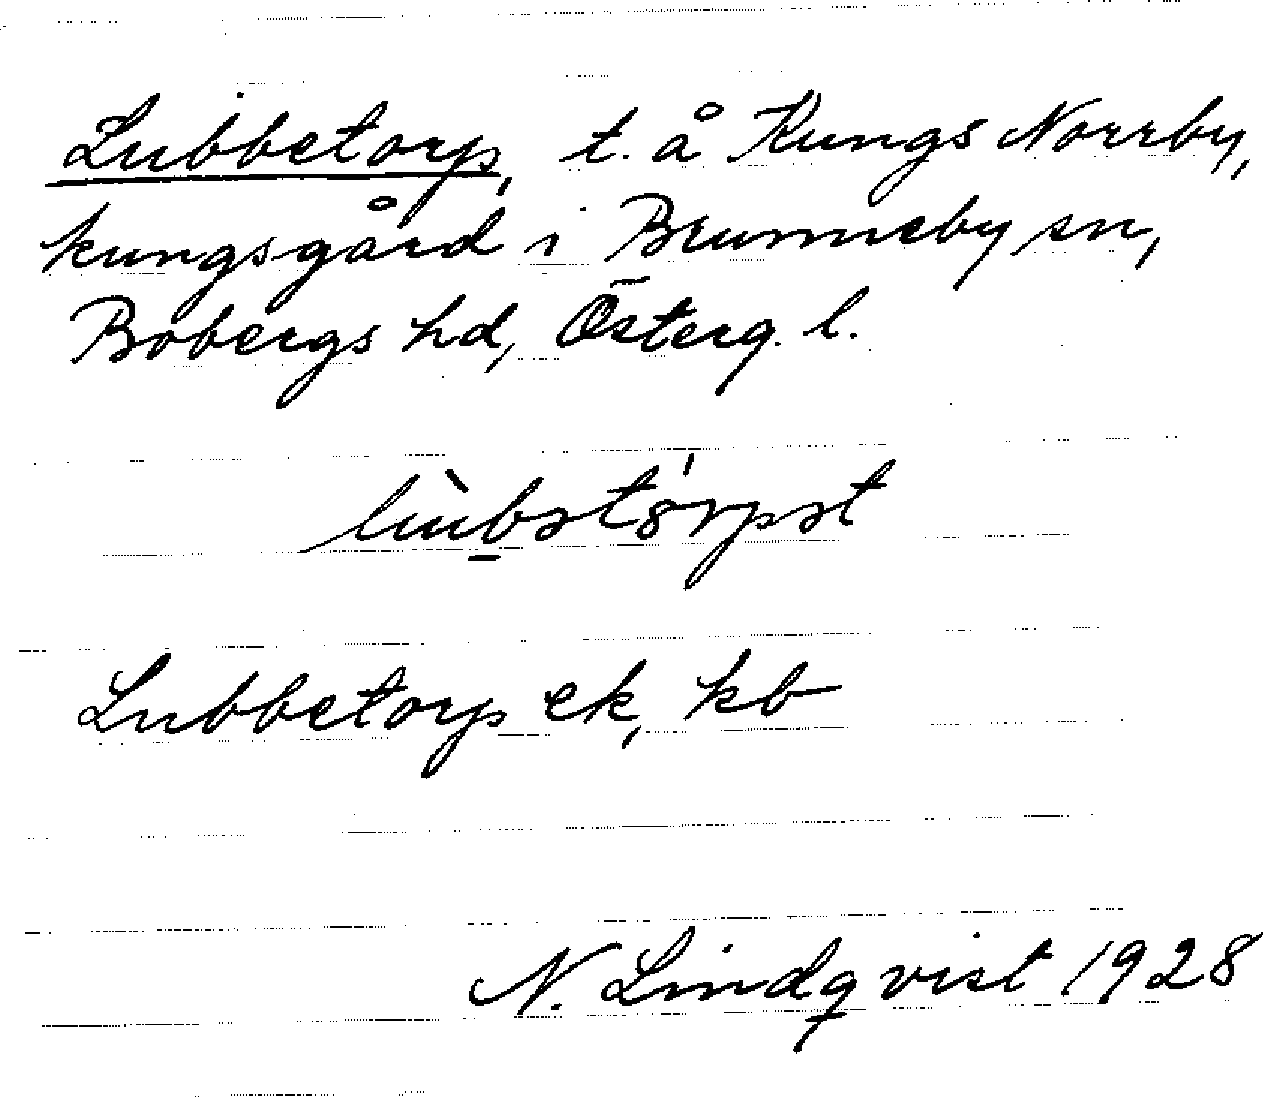 Lubbetorp, t. å Kungs Norrby,
kungsgård i Brunneby sn,
Bobergs hd, Österg. l.
Lubbetorp ek, kb
N. Lindqvist 1928